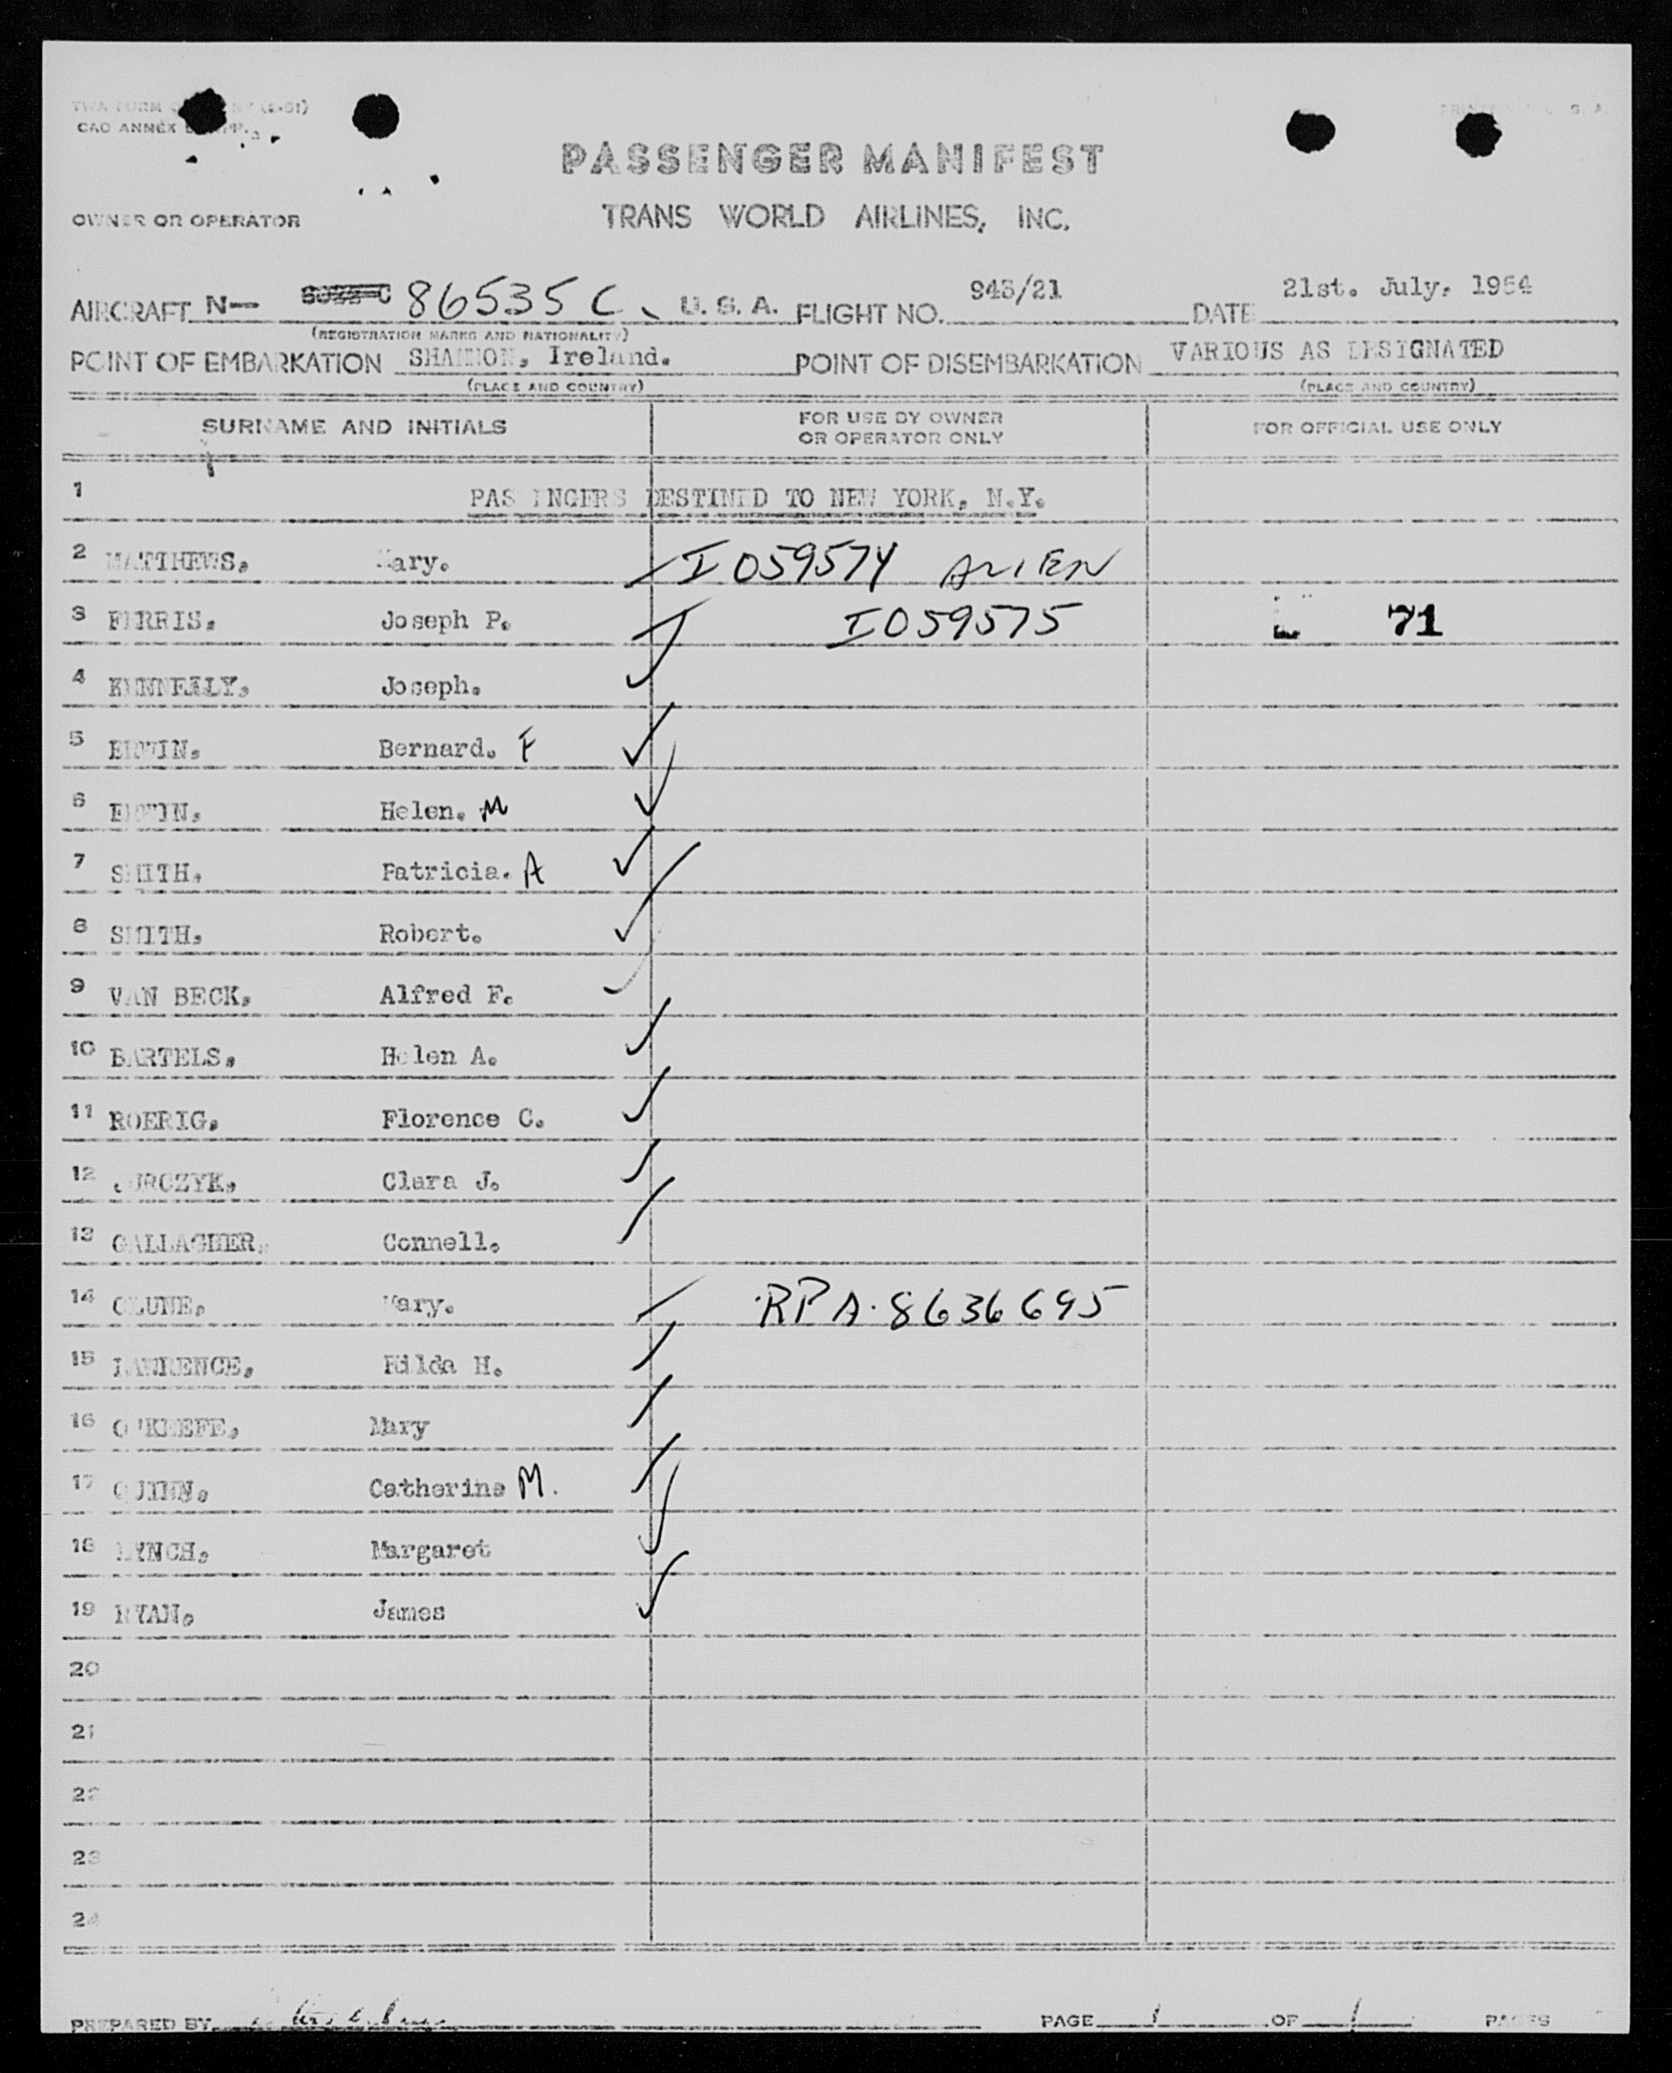 CAO ANNEX
PASSENGER MANIFEST
OWNER OR OPERATOR TRANS WORLD AIRLINES, INC.
AIRCRAFT N- 86535 C U. S. A. FLIGHT NO. 943/21 DATE 21st. July. 1954
(REGISTRATION MARKS AND NATIONALITY)
POINT OF EMBARKATION SHANNON, Ireland. POINT OF DISEMBARKATION VARIOUS AS DESIGNATED
(PLACE AND COUNTRY) (PLACE AND COUNTRY)
SURNAME AND INITIALS FOR USE BY OWNER OR OPERATOR ONLY FOR OFFICIAL USE ONLY
1 PASSENGERS DESTINED TO NEW YORK, N.Y.
2 MATTHEWS, Mary. I 059574 ALIEN
3 FERRIS, Joseph P. I 059575 71
4 KENNEALY, Joseph.
5 Bernard. F
6 Helen. M
7 SMITH, Patricia. A
8 SMITH, Robert.
9 VAN BECK, Alfred F.
10 BARTELS, Helen A.
11 ROERIG, Florence C.
12 JURCZYK, Clara J.
13 GALLAGHER, Connell.
14 CLUNE, Mary. RPA. 8636695
15 LAWRENCE, Hilda H.
16 O'KEEFE, Mary
17 QUINN, Catherine M.
18 LYNCH, Margaret
19 RYAN, James
20
21
22
23
24
PREPARED BY PAGE 1 OF 1 PAGES